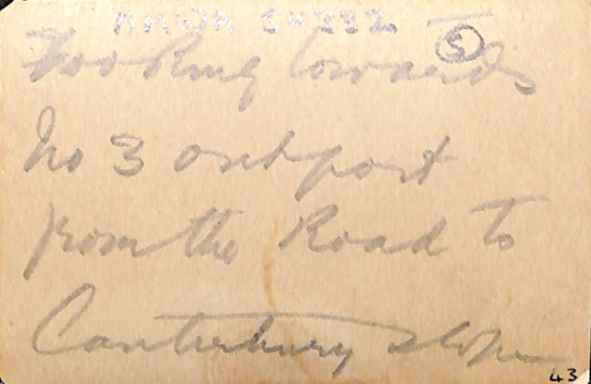 Looking towards
5
No 3 outpost
from the Road to
Canterbury slope
43